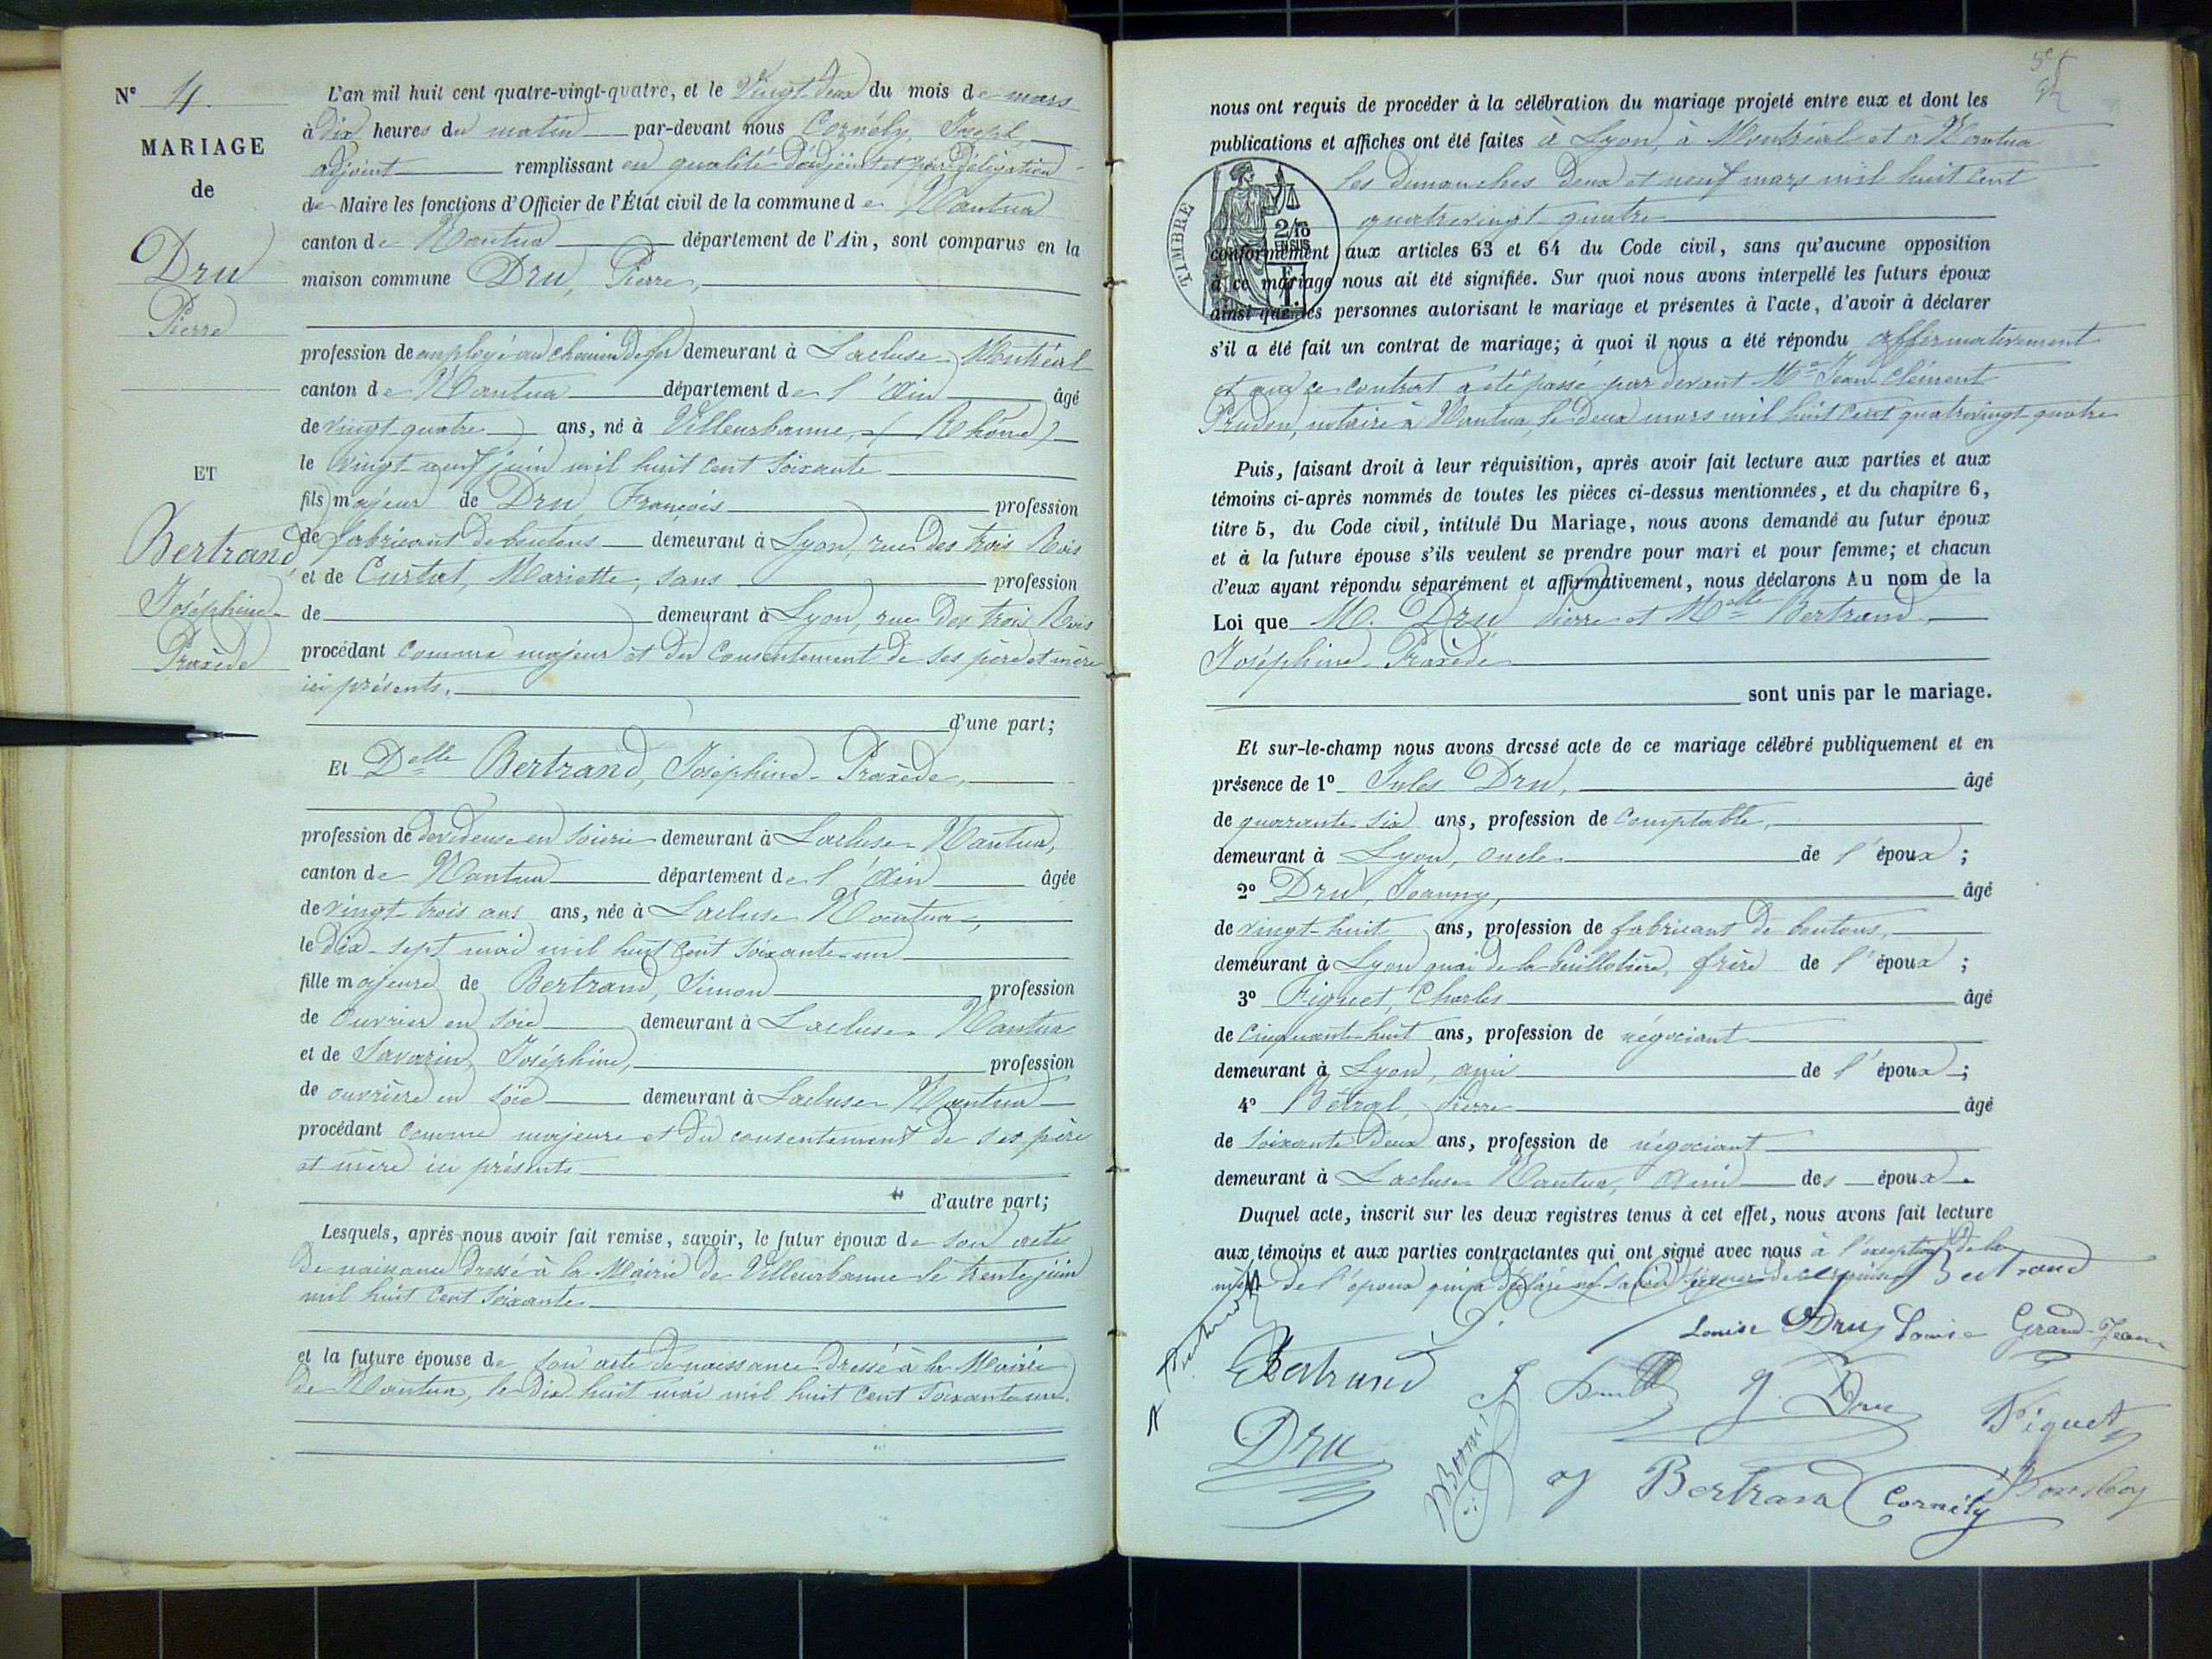 N° 4.
MARIAGE
de
Dru
Pierre
ET
Bertrand,
Joséphine
Praxède
L'an mil huit cent quatre-vingt-quatre, et le Vingt-deux du mois de mars
à dix heures du matin par-devant nous Cornély, Joseph,
adjoint remplissant en qualité d'adjoint et par délégation
de Maire les fonctions d'Officier de l'État civil de la commune de Nantua
canton de Nantua département de l'Ain, sont comparus en la
maison commune Dru, Pierre,
profession de employé au chemin de fer demeurant à Lacluse-Montréal
canton de Nantua département de l'Ain âgé
de vingt-quatre ans, né à Villeurbanne, (Rhône)
le vingt neuf juin mil huit cent soixante
fils majeur de Dru François profession
de fabricant de boutons demeurant à Lyon, rue des trois Rois
et de Curtat, Mariette, sans profession
de demeurant à Lyon, rue des trois Rois
procédant comme majeur et du consentement de ses père et mère
ici présents.
d'une part;
Et Delle Bertrand, Joséphine-Praxède,
profession de dévideuse en soierie demeurant à Lacluse-Nantua,
canton de Nantua département de l'Ain âgée
de vingt-trois ans ans, née à Lacluse Nantua,
le dix-sept mai mil huit cent soixante un
fille majeure de Bertrand, Simon profession
de ouvrier en soie demeurant à Lacluse-Nantua
et de Savarin, Joséphine, profession
de ouvrière en soie demeurant à Lacluse-Nantua
procédant comme majeure et du consentement de ses père
et mère ici présents
d'autre part;
Lesquels, après nous avoir fait remise, savoir, le futur époux de son acte
de naissance dressé à la Mairie de Villeurbanne le trente juin
mil huit cent soixante
et la future épouse de son acte de naissance dressé à la Mairie
de Nantua, le dix huit mai mil huit cent soixante un.
nous ont requis de procéder à la célébration du mariage projeté entre eux et dont les
publications et affiches ont été faites à Lyon, à Montréal et à Nantua
les dimanches deux et neuf mars mil huit cent
quatrevingt quatre
TIMBRE
2/10
EN SUS
conformément aux articles 63 et 64 du Code civil, sans qu'aucune opposition
à ce mariage nous ait été signifiée. Sur quoi nous avons interpellé les futurs époux
ainsi que les personnes autorisant le mariage et présentes à l'acte, d'avoir à déclarer
s'il a été fait un contrat de mariage; à quoi il nous a été répondu affirmativement
et que ce contrat a été passé par devant Me Jean-Clément
Prudon, notaire à Nantua, le deux mars mil huit cent quatrevingt-quatre
Puis, faisant droit à leur réquisition, après avoir fait lecture aux parties et aux
témoins ci-après nommés de toutes les pièces ci-dessus mentionnées, et du chapitre 6,
titre 5, du Code civil, intitulé Du Mariage, nous avons demandé au futur époux
et à la future épouse s'ils veulent se prendre pour mari et pour femme; et chacun
d'eux ayant répondu séparément et affirmativement, nous déclarons Au nom de la
Loi que M. Dru Pierre et Melle Bertrand
Joséphine Praxède
sont unis par le mariage.
Et sur-le-champ nous avons dressé acte de ce mariage célébré publiquement et en
présence de 1° Jules Dru, âgé
de quarante-six ans, profession de comptable,
demeurant à Lyon, oncle de l'époux;
2° Dru, Joanny, âgé
de vingt-huit ans, profession de fabricant de boutons,
demeurant à Lyon quai de la Guillotière, frère de l'époux;
3° Piguet, Charles âgé
de cinquante-huit ans, profession de négociant
demeurant à Lyon, ami de l'époux;
4° Pierre âgé
de soixante-deux ans, profession de négociant
demeurant à Lacluse-Nantua, ami des époux.
Duquel acte, inscrit sur les deux registres tenus à cet effet, nous avons fait lecture
aux témoins et aux parties contractantes qui ont signé avec nous à l'exception de la
mère de l'époux qui a déclaré ne savoir signer de ce requise. Bertrand
Louise Dru Louise Grand-Jean
Bertrand
J. Dru
Piguet
Dru
Bertrand
Cornély